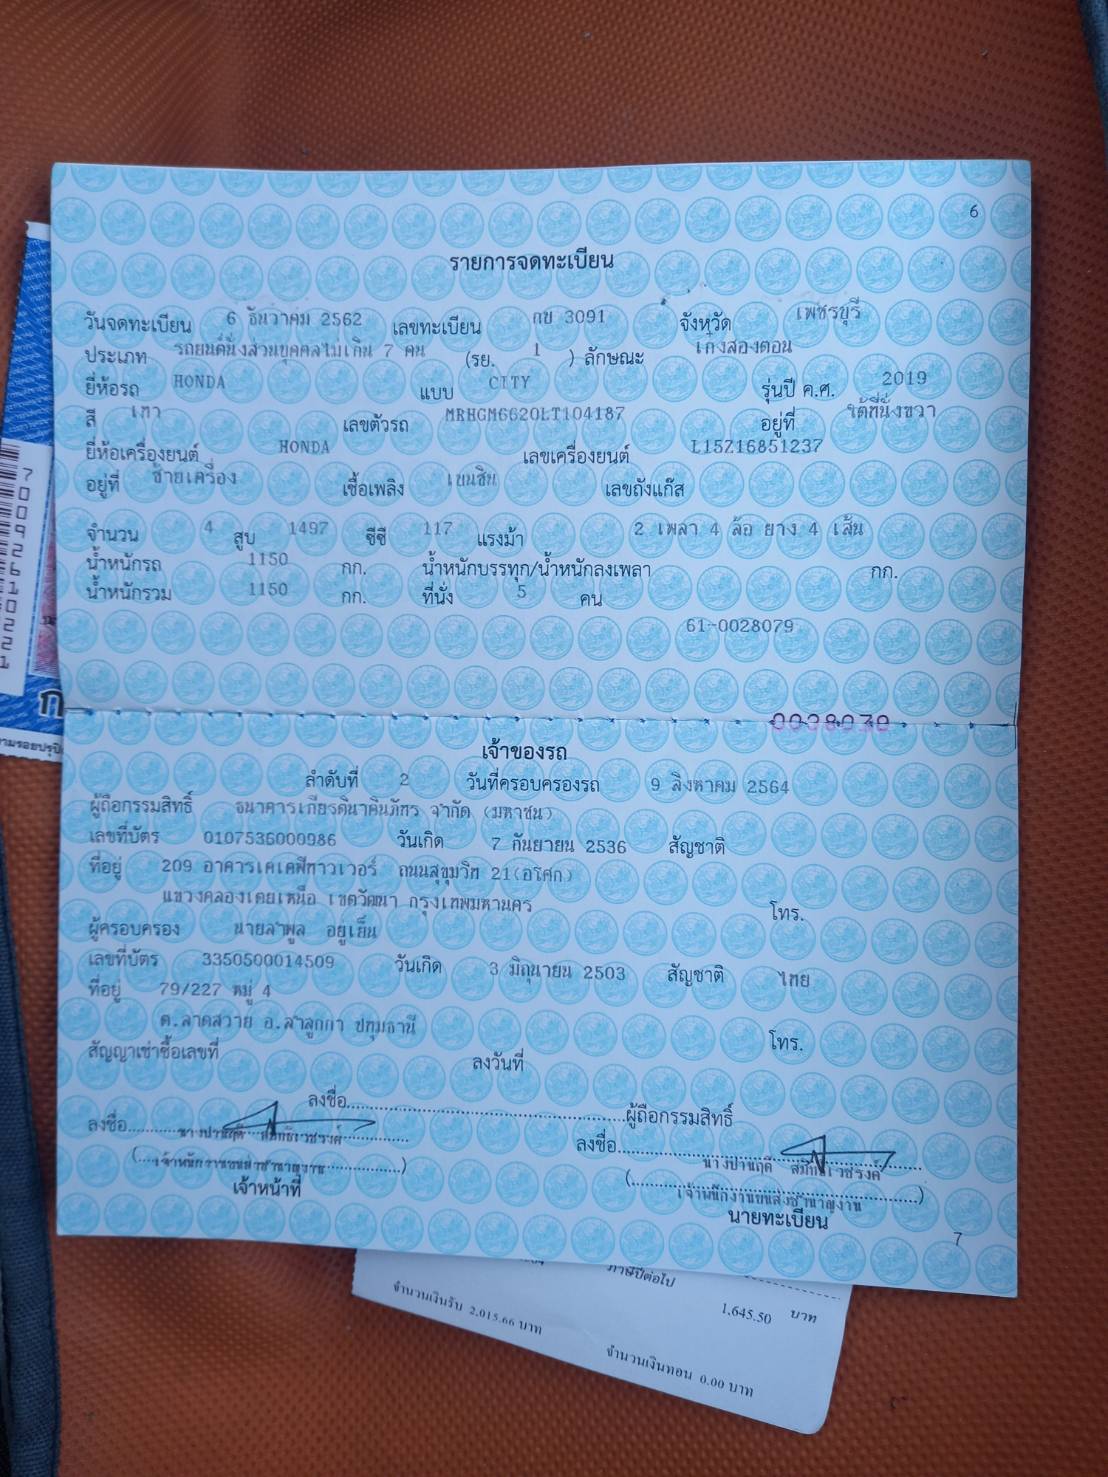 6
รายการจดทะเบียน
วันจดทะเบียน 6 ธันวาคม 2562 เลขทะเบียน กข 3091 จังหวัด เพชรบุรี
ประเภท รถยนต์นั่งส่วนบุคคลไม่เกิน 7 คน (รย. 1 ) ลักษณะ เก๋งสองตอน
ยี่ห้อรถ HONDA แบบ CITY รุ่นปี ค.ศ. 2019
สี เทา เลขตัวรถ MRHGM6620LT104187 อยู่ที่ ใต้ที่นั่งขวา
ยี่ห้อเครื่องยนต์ HONDA เลขเครื่องยนต์ L15Z16851237
อยู่ที่ ซ้ายเครื่อง เชื้อเพลิง เบนซิน เลขถังแก๊ส
จำนวน 4 สูบ 1497 ซีซี 117 แรงม้า 2 เพลา 4 ล้อ ยาง 4 เส้น
น้ำหนักรถ 1150 กก. น้ำหนักบรรทุก/น้ำหนักลงเพลา กก.
น้ำหนักรวม 1150 กก. ที่นั่ง 5 คน
61-0028079
เจ้าของรถ
ลำดับที่ 2 วันที่ครอบครองรถ 9 สิงหาคม 2564
ผู้ถือกรรมสิทธิ์ ธนาคารเกียรตินาคินภัทร จำกัด (มหาชน)
เลขที่บัตร 0107536000986 วันเกิด 7 กันยายน 2536 สัญชาติ
ที่อยู่ 209 อาคารเคเคพีทาวเวอร์ ถนนสุขุมวิท 21(อโศก)
แขวงคลองเตยเหนือ เขตวัฒนา กรุงเทพมหานคร โทร.
ผู้ครอบครอง นายลำพูล อยู่เย็น
เลขที่บัตร 3350500014509 วันเกิด 3 มิถุนายน 2503 สัญชาติ ไทย
ที่อยู่ 79/227 หมู่ 4
ต.ลาดสวาย อ.ลำลูกกา ปทุมธานี โทร.
สัญญาเช่าซื้อเลขที่ ลงวันที่
ลงชื่อ ผู้ถือกรรมสิทธิ์
ลงชื่อ ลงชื่อ
(เจ้าพนักงานขนส่งชำนาญงาน) (เจ้าพนักงานขนส่งชำนาญงาน)
เจ้าหน้าที่ นายทะเบียน
7
ภาษีปีต่อไป 1,645.50 บาท
จำนวนเงินรับ 2,015.66 บาท
จำนวนเงินทอน 0.00 บาท